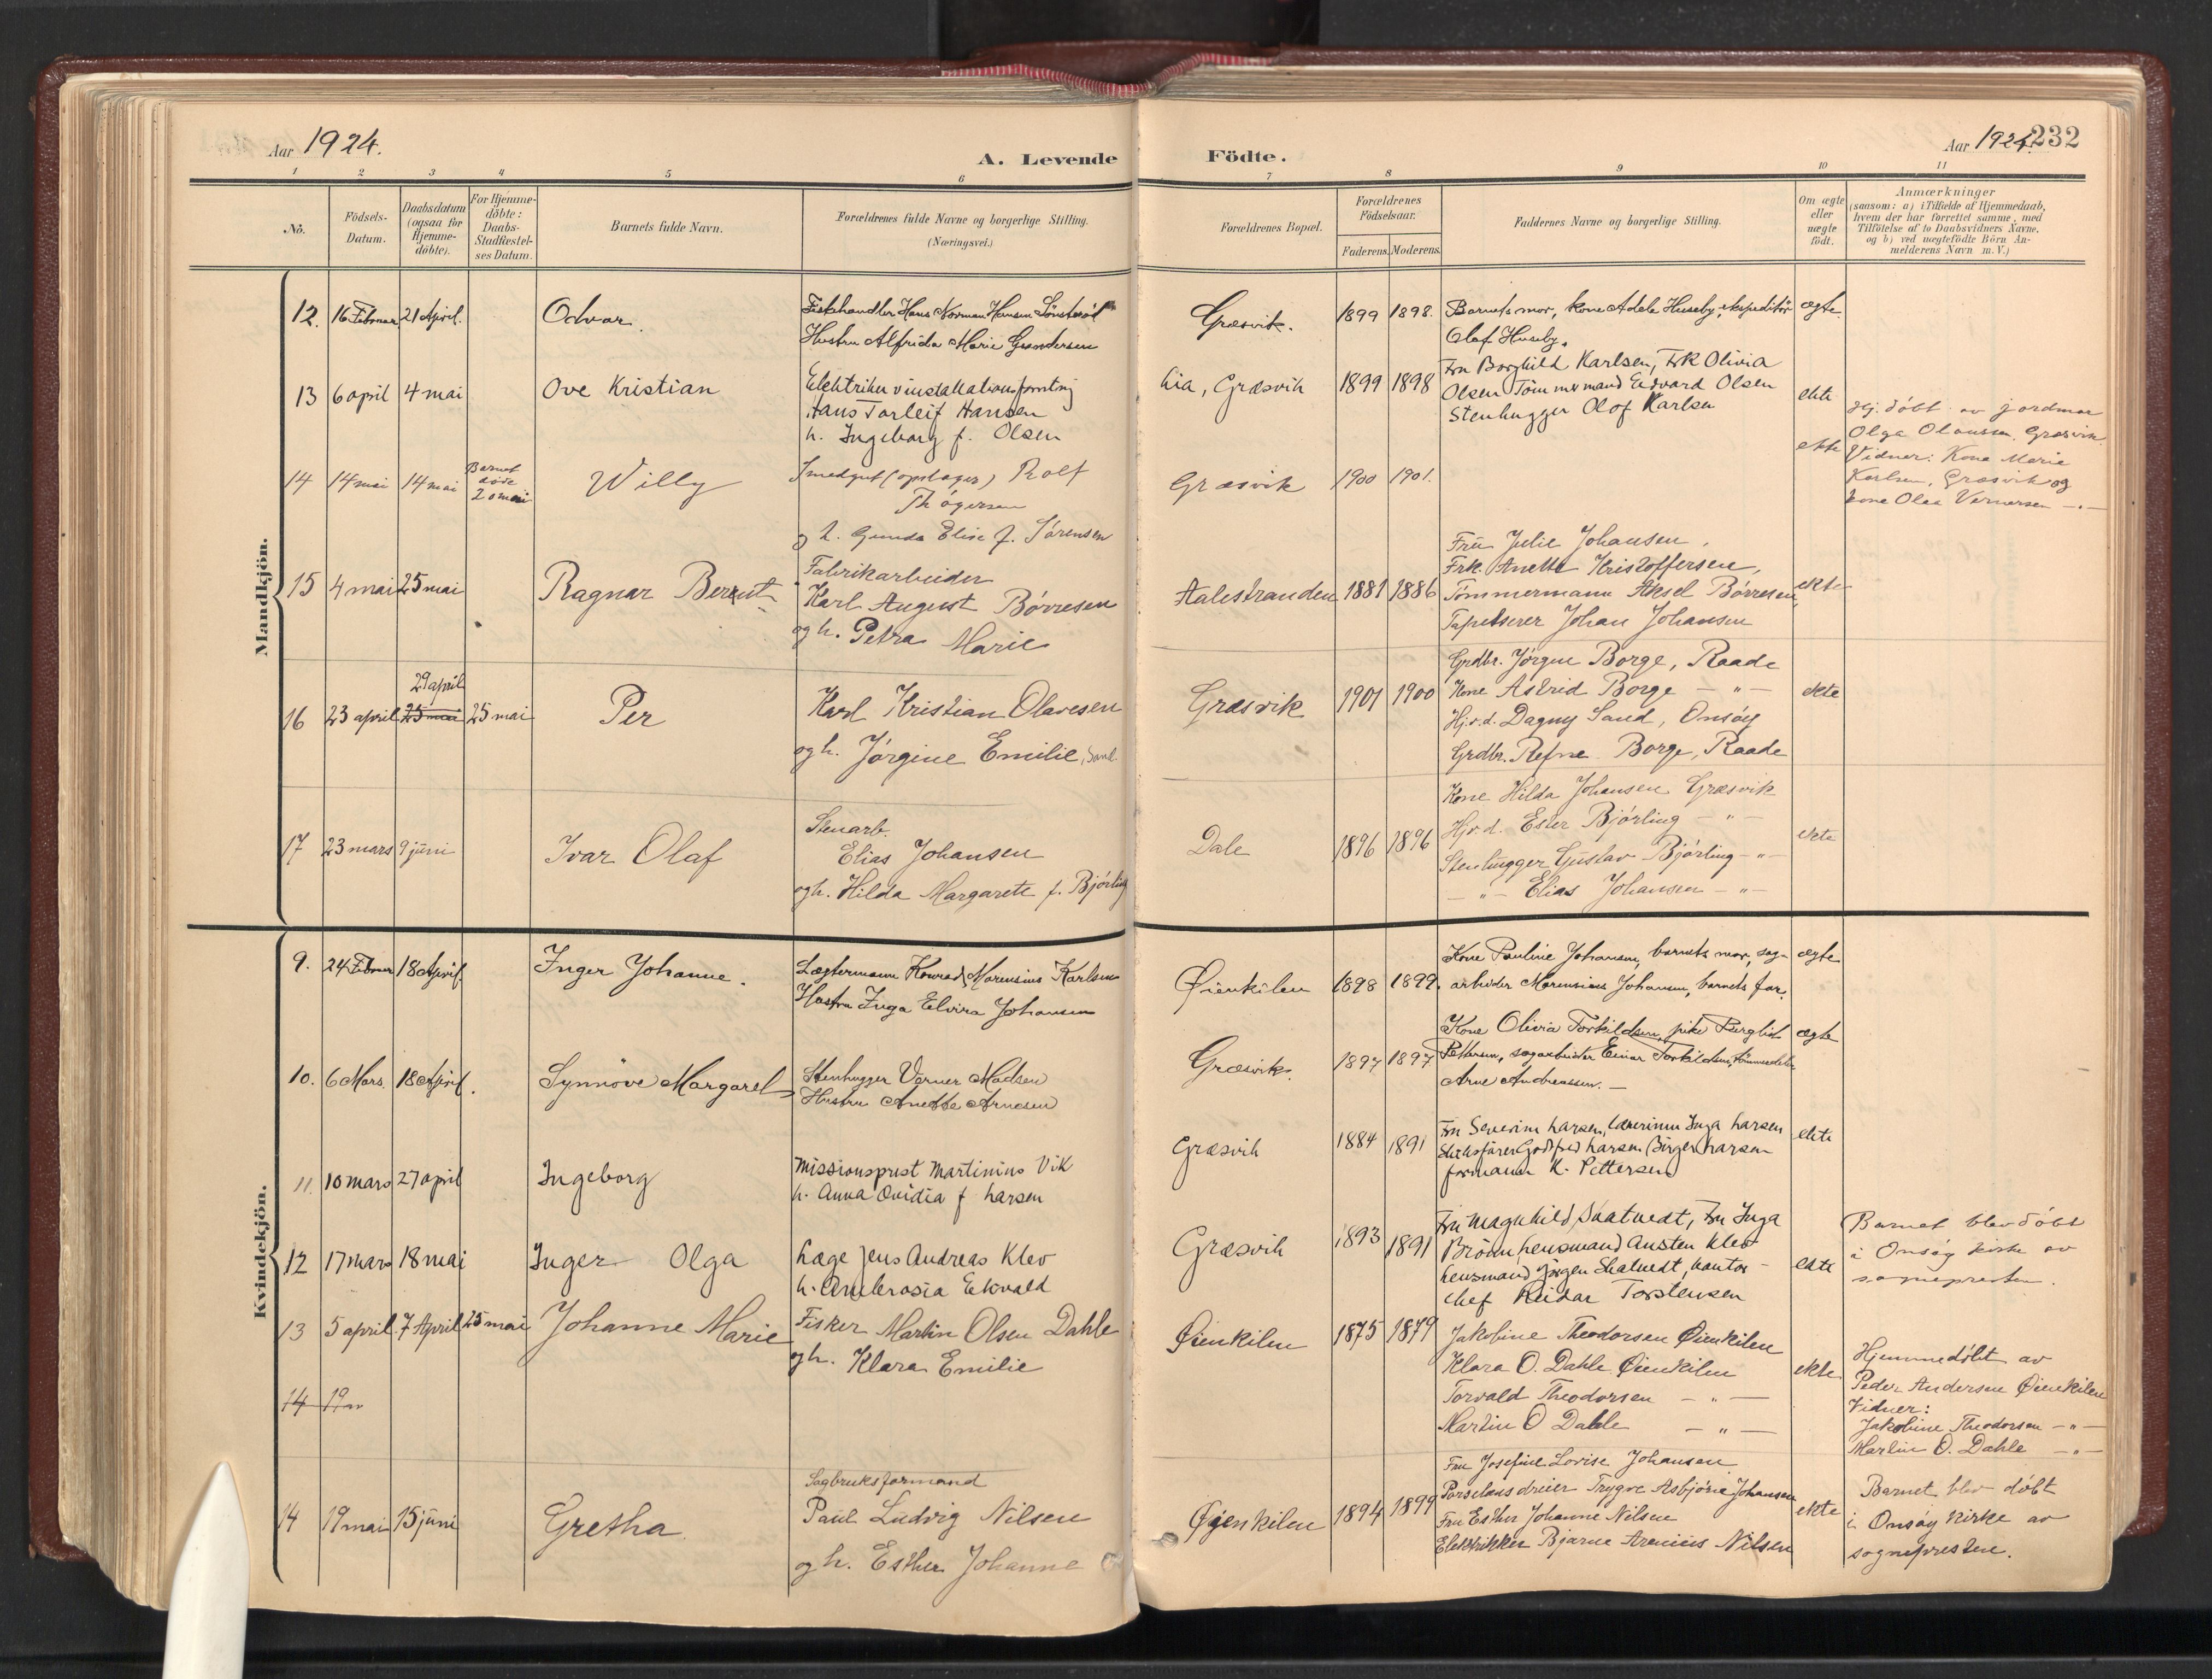 Aar 1924.
A. Levende
Födte.
Aar 1924.
232
1 2 3 4 5 6 7 8 9 10 11
No.
Födsels-
Datum.
Daabsdatum
(ogsaa for
Hjemme-
döbte).
For Hjemme-
döbte:
Daabs-
Stadfæstel-
ses Datum.
Barnets fulde Navn.
Forældrenes fulde Navne og borgerlige Stilling.
(Næringsvei.)
Forældrenes Bopæl.
Forældrenes
Födselsaar.
Faderens. Moderens.
Faddernes Navne og borgerlige Stilling.
Om ægte
eller
uægte
födt.
Anmærkninger
(saasom: a) i Tilfælde af Hjemmedaab,
hvem der har forrettet samme, med
Tilföielse af to Daabsvidners Navne,
og b) ved uægtefödte Börn An-
melderens Navn m. V.)
Mandkjön.
12. 16 Februar 21 April. Odvar.
Fiskehandler Hans Norman Hansen
Hustru Alfrida Marie Gundersen
Græsvik. 1899 1898.
Barnets mor, kone Adele Huseby, ekspeditör
Olaf Huseby.
ægte.
13 6 april 4 mai Ove Kristian
Hans Torleif Hansen
h. Ingeborg f. Olsen
Lia, Græsvik 1899 1898
Fru Borghild Karlsen, Frk Olivia
Olsen Tömmermand Edvard Olsen
Stenhugger Olof Karlsen
ekte
14 14 mai 14 mai
Barnet
döde
20 mai
Willy
Rolf
Thögersen
og h. Gunda Elise f. Sörensen
Græsvik 1900 1901.
ekte
Hj. döbt av jordmor
Olga Olaussen, Græsvik.
Vidner: Kone Marie
Karlsen, Græsvik og
kone Olea Vernersen — " —
15 4 mai 25 mai Ragnar Berent
Fabrikarbeider
Karl August Börresen
og h. Petra Marie
Aalestranden 1881 1886
Fru Julie Johansen,
Frk. Anette Kristoffersen,
Tömmermann Aksel Börresen,
Tapetserer Johan Johansen
ekte
16 23 april
29 april
25 mai
25 mai Per
Karl Kristian Olavesen
og h. Jörgine Emilie, Sand
Græsvik 1901 1900
Grdbr. Jörgen Borge, Raade
Kone Astrid Borge — " —
Hj.v.d. Dagny Sand, Onsöy
Grdbr. Refne Borge, Raade
ekte
17 23 mars 9 juni Ivar Olaf
Stenarb.
Elias Johansen
og h. Hilda Margarete f. Björling
Dale 1896 1896
Kone Hilda Johansen Græsvik
Hj.v.d. Ester Björling — " —
Stenhugger Gustav Björling — " —
— " — Elias Johansen — " —
ekte
Kvindekjön.
9. 24 Februar 18 April Inger Johanne.
Lægtermann Konrad Marensius Karlsen
Hustru Inga Elvira Johansen
Øienkilen 1898 1899.
Kone Pauline Johansen, barnets mor, sag-
arbeider Marensius Johansen, barnets far.
ægte
10. 6 Mars. 18 April. Synnöve Margaret
Stenhugger Verner Madsen
Hustru Anette Arnesen
Græsvik. 1897 1897
Kone Olivia Torkildsen, pike
Pettersen, sagarbeider Einar Torkildsen,
Arne Andreassen. —
ægte
11. 10 mars 27 april Ingeborg
Missionsprest Martinius Vik
h. Anna Ovidia f Larsen
Græsvik 1884 1891
Fru Severine Larsen, Lærerinne Inga Larsen
Godfred Larsen, Birger Larsen
formann K. Pettersen
ekte
12 17 mars 18 mai Inger Olga
Læge Jens Andreas Klev
h. Ambrosia Ekvald
Græsvik 1893 1891
Fru Magnhild Skatvedt, Fru Inga
Brönn, Lensmand Austen Klev
Lensmand Jörgen Skatvedt, kontor-
chef Reidar Torstensen
ekte
Barnet blev döbt
i Onsöy kirke av
sognepresten.
13 5 april 7 April 25 mai Johanne Marie
Fisker Martin Olsen Dahle
og h. Klara Emilie
Øienkilen 1875 1879
Jakobine Theodorsen Øienkilen
Klara O. Dahle Øienkilen
Torvald Theodorsen — " —
Martin O Dahle — " —
ekte
Hjemmedöbt av
Peder Andersen Øienkilen
Vidner:
Jakobine Theodorsen — " —
Martin O. Dahle — " —
14 19
14 19 mai 15 juni Gretha.
Sagbruksformand
Paul Ludvig Nilsen
og h. Esther Johanne
Øyenkilen 1894 1899
Fru Josefine Lovise Johansen
Porselænsdreier Trygve Asbjörn Johansen
Fru Esther Johanne Nilsen
Elektrikker Bjarne Arenius Nilsen
ekte
Barnet blev döbt
i Onsöy kirke av
sognepresten.